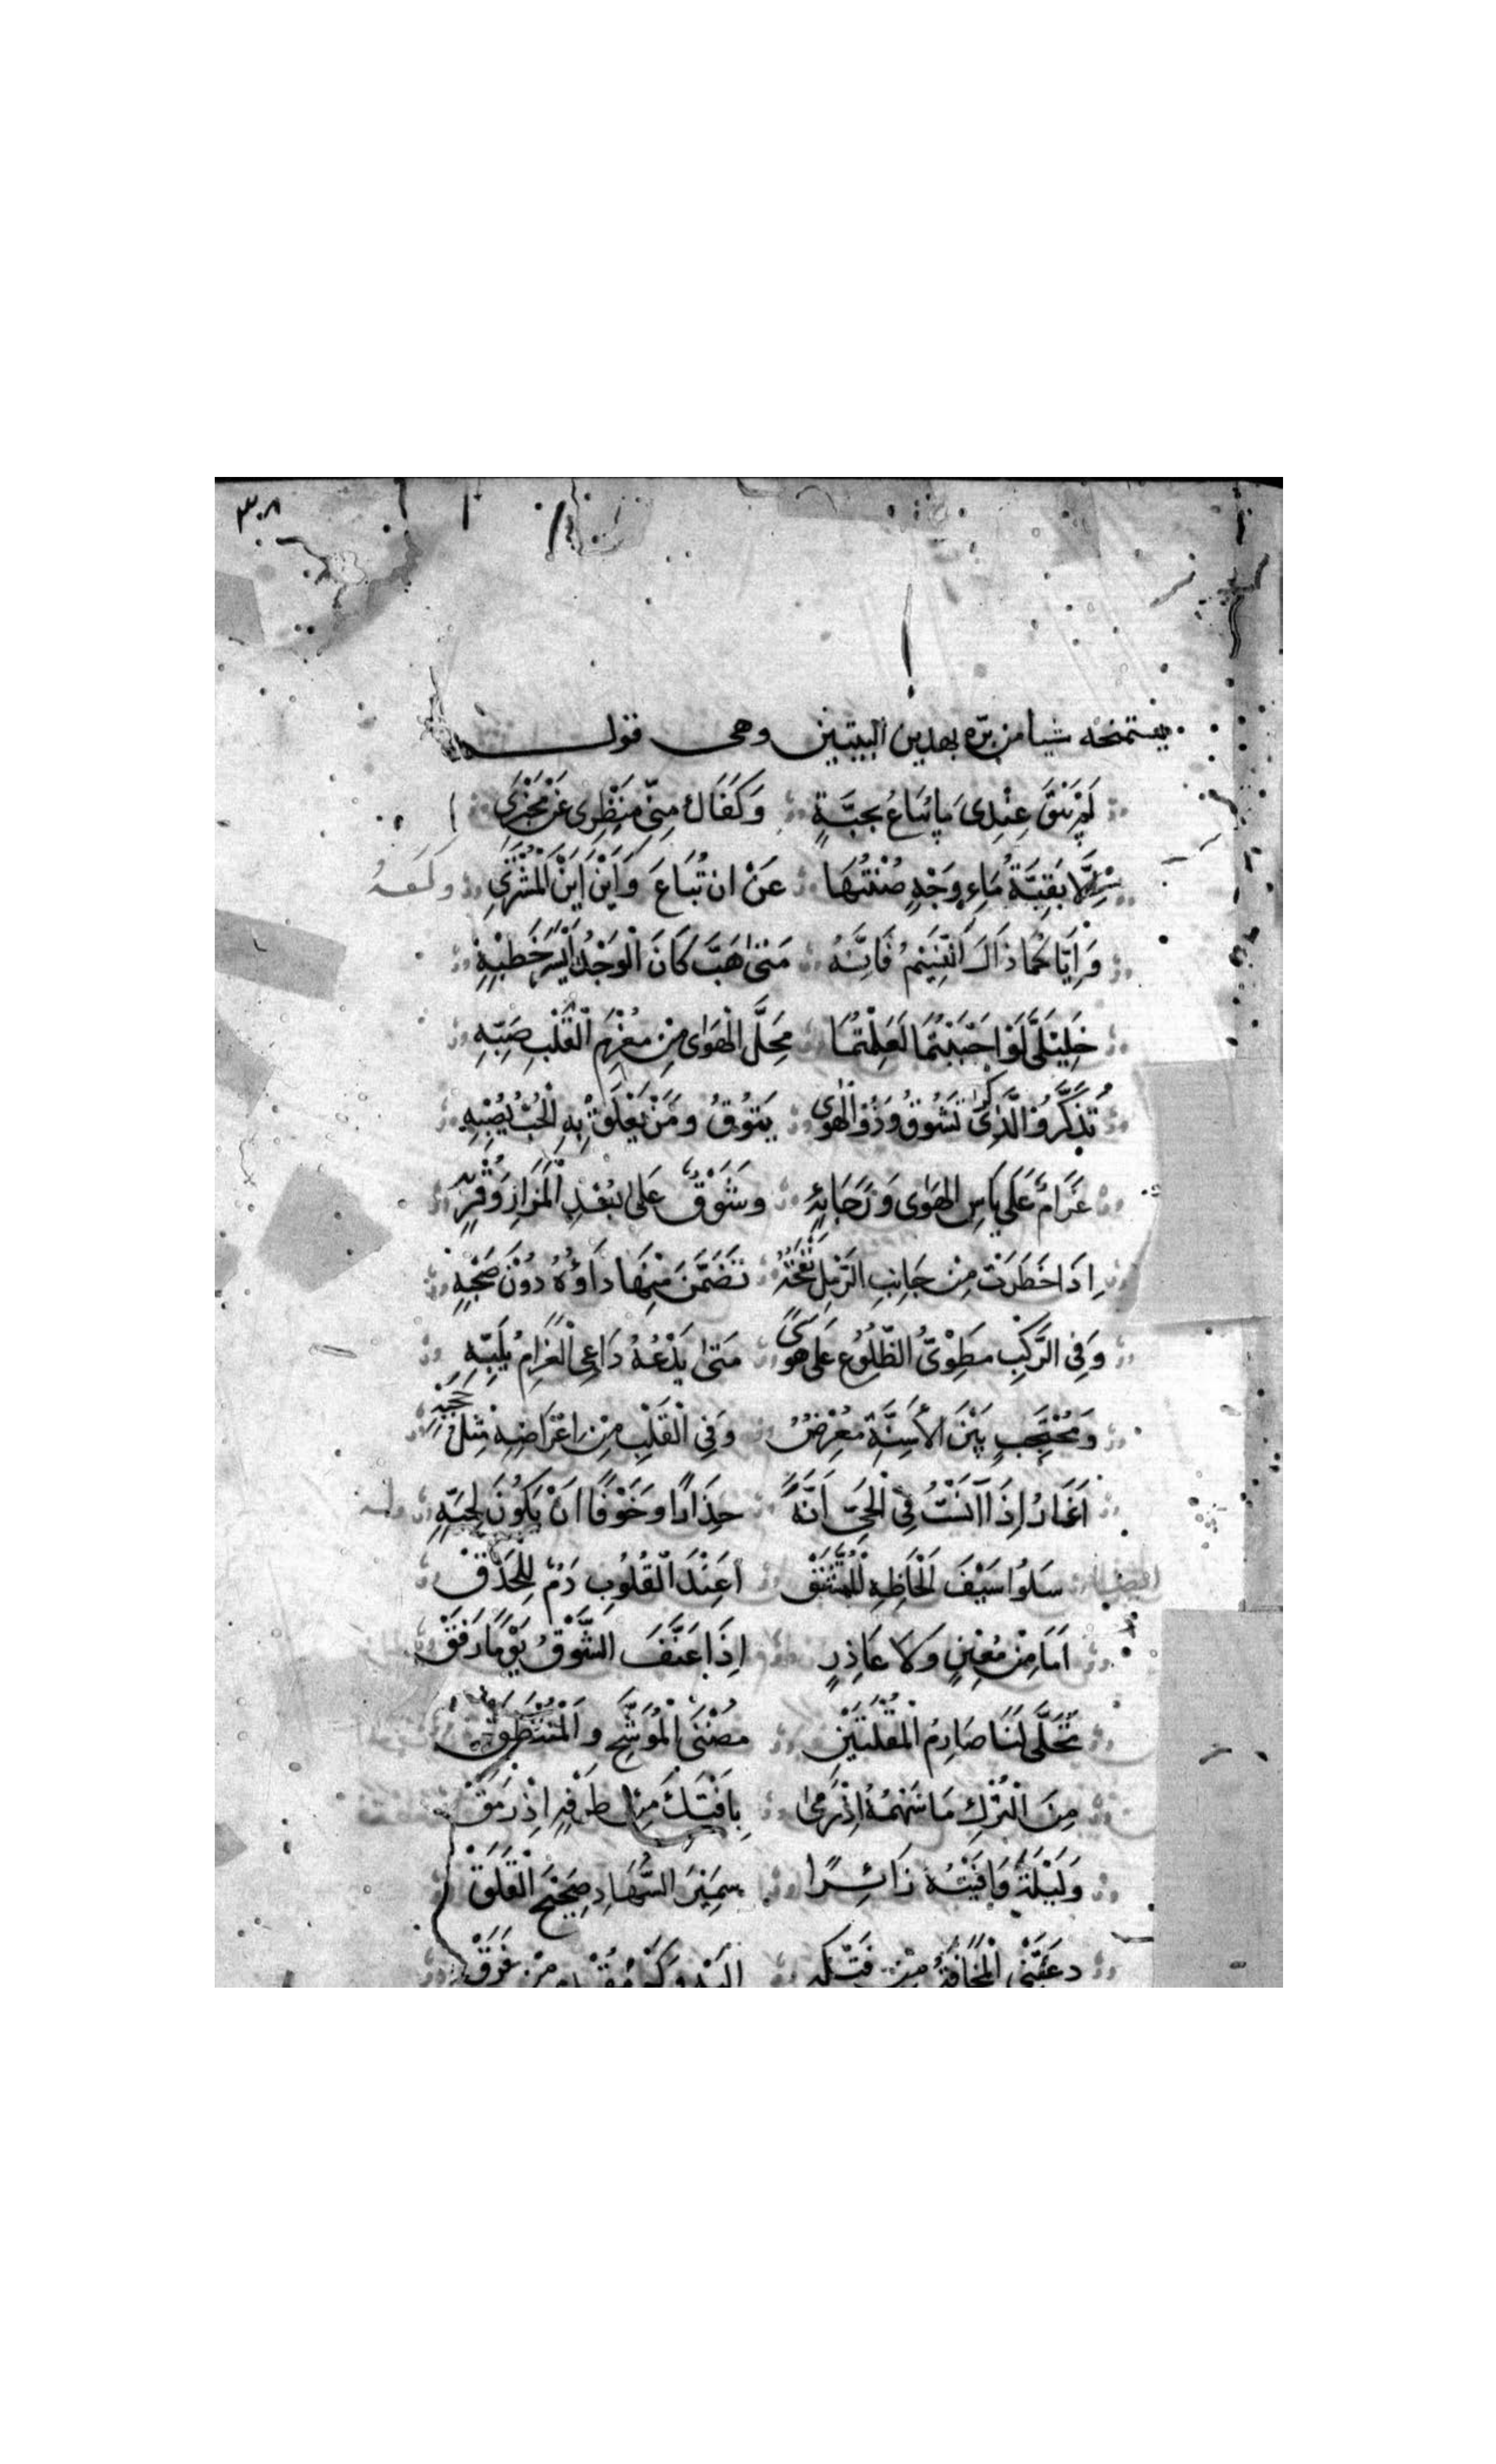 ٣٠٨
يستمنحه شيا من برّه بهذين البيتين وهي قول
لَمْ يَبْقَ عِنْدِىَ مَا يُبَاعُ بِحَبَّةٍ وَكَفَاكَ مِنِّى مَنْظَرِى عَنْ مَخْبَرِى
اِلَّا بَقِيَّةُ مَاءِ وَجْهٍ صُنْتُهَا عَنْ ان تُبَاعَ وَاَيْنَ اَيْنَ الْمُشْتَرِى
وَاِيَّاكُمَا ذَاكَ النَّسِيْمُ فَاِنَّهُ مَتىٰ هَبَّ كَانَ الْوَجْدُ اَيْسَرَ خَطْبِهِ
خَلِيْلَىَّ لَوْ اَحْبَبْتُمَا لَعَلِمْتُمَا مَحَلَّ الْهَوٰى مِنْ مُغْرَمِ الْقَلْبِ صَبِّهِ
تَذَكَّرُ وَالذِّكْرٰى تَشُوقُ وَذُو الْهَوٰى يَتُوْقُ وَمَنْ يَعْلَقْ بِهِ الْحُبُّ يُصْبِهِ
غَرَامٌ عَلَى يَاسِ الهَوٰى وَرَجَائِهِ وشَوْقٌ عَلى بُعْدِ الْمَزَارِ وَقُرْبِهِ
اِذَا خَطَرَتْ مِنْ جَانِبِ الرَّمْلِ نَفْحَةٌ تَضَمَّنَ مِنْهَا دَاؤُهُ دُوْنَ صَحْبِهِ
وَفِى الرَّكْبِ مَطْوِىُّ الضُّلُوْعِ عَلى هوىً مَتىٰ يَدْعُهُ دَاعِى الْغَرَامِ يُلَبِّهِ
وَمُحْتَجِبٍ بَيْنَ الاَسِنَّةِ مُعْرِضٌ وَفِى الْقَلْبِ مِنْ اِعْرَاضِهِ مِثْلُ حُجْبِهِ
اَغَارُ اِذَا آنَسْتُ فِى الْحَىِّ اَنَّةً حِذَارًا وخَوْفًا اَنْ يَكُوْنَ لِحُبِّهِ
سَلُوا سَيْفَ اَلْحَاظِهِ الْمُمْتَشَقْ اَعِنْدَ الْقُلُوْبِ دَمٌ لِلْحَدَقْ
اَمَا مِنْ مُعِيْنٍ وَلَا عَاذِرٍ اِذَا عَنَّفَ الشَّوْقُ يَوْمًا رَفَقْ
تَجَلَّى لَنَا صَارِمُ الْمُقْلَتَيْنِ مُضْنَى الْمُوَشَّحِ وَالْمُنْتَطَقْ
مِنَ التُّرْكِ مَا سَهْمُهُ اِذْ رَمٰى بِاَفْتَكَ مِنْ طَرْفِهِ اِذْ رَمَقْ
وَلَيْلَةَ وَافَيْتُهُ زَائِرًا سَمِيْرَ السُّهَادِ ضَجِيْعَ الْقَلَقْ
دعَتْنِى الْمَخَافَةُ مِنْ فَتْكِهِ اليْهِ وَكَمْ مُقْدِمٍ مِنْ فَرَقْ